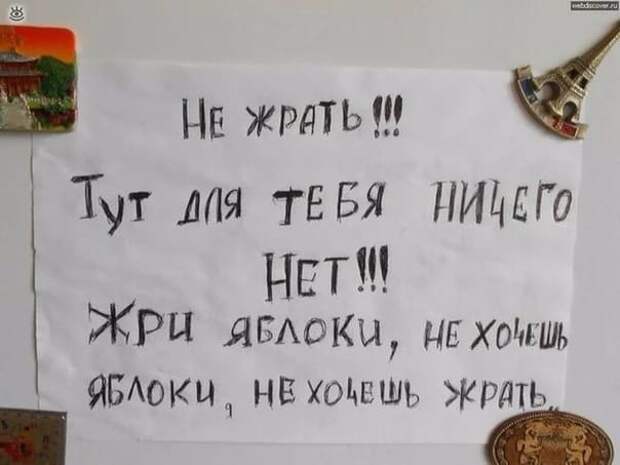 webdiscover.ru
Не жрать!!!
Тут для тебя ничего
нет!!!
Жри яблоки, не хочешь
яблоки, не хочешь жрать..